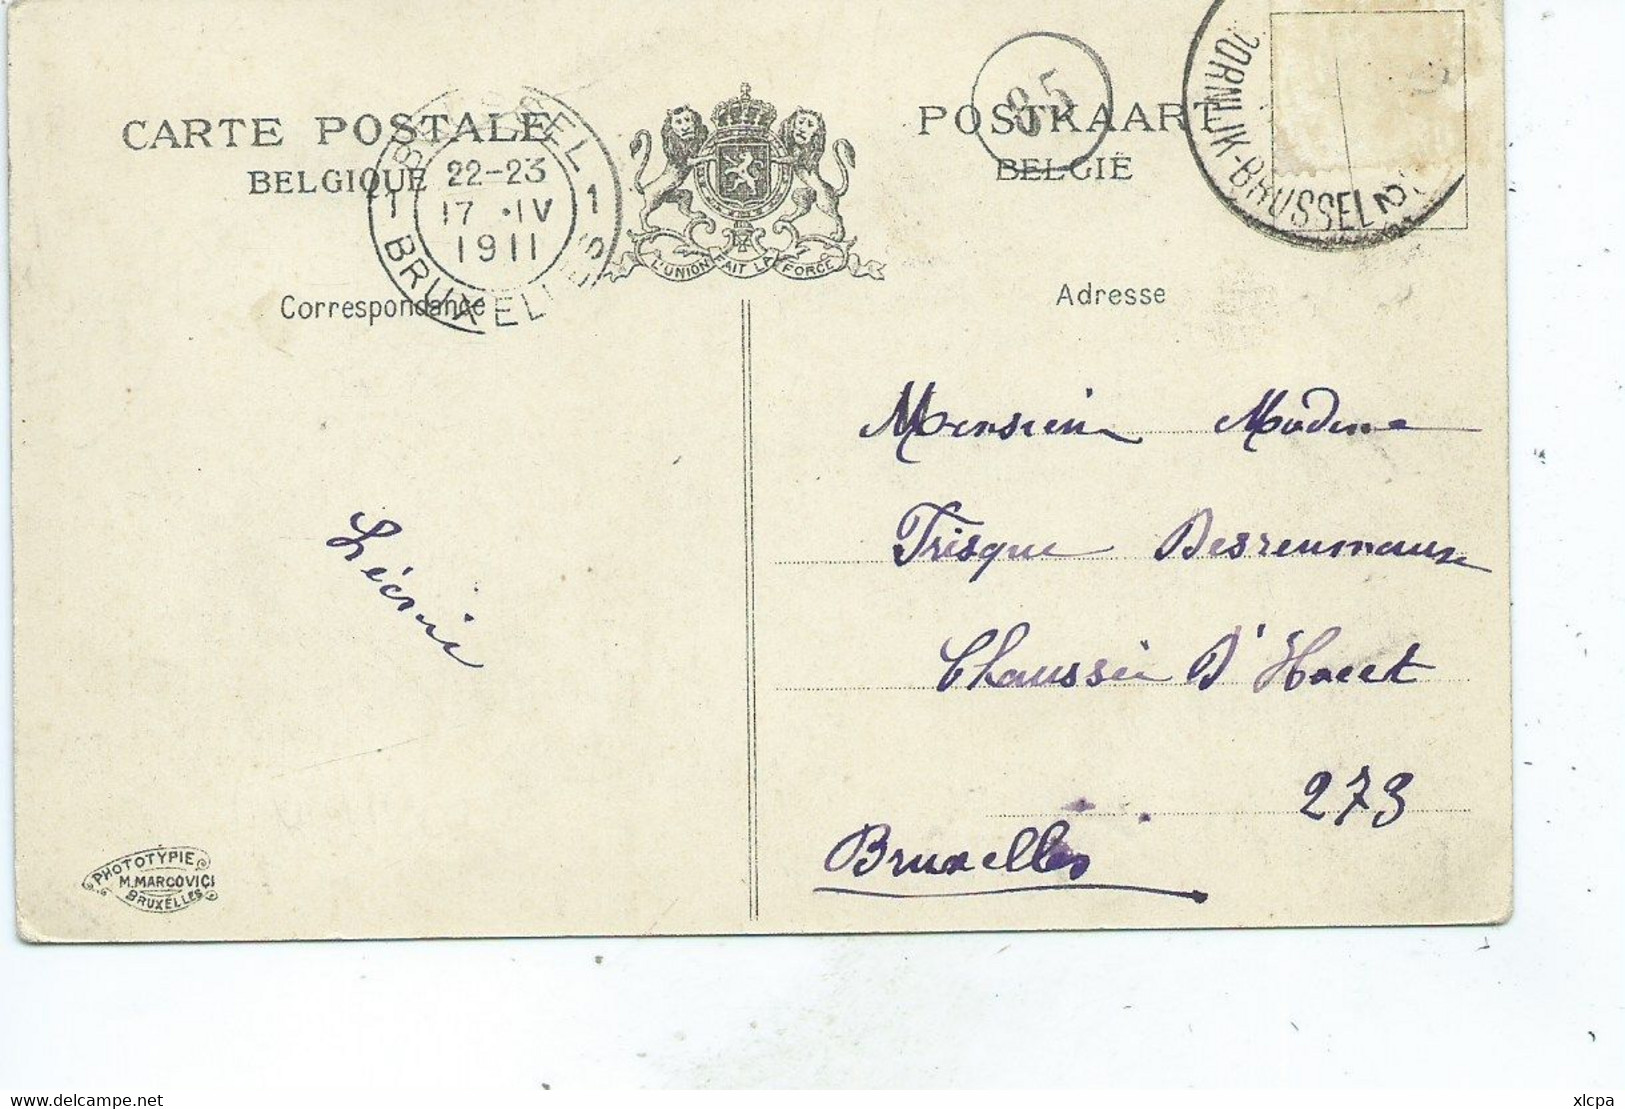 CARTE POSTALE
BELGIQUE
POSTKAART
BELGIË
85
BRUSSEL
1 22-23 1
17 · IV
1911
BRUXELLES
L'UNION FAIT LA FORCE
DORNIJK-BRUSSEL 2
Correspondance
Adresse
Monsieur Madame
Trisque Desreumaux
Chaussée D'Haect
273
Bruxelles
Léonie
PHOTOTYPIE
M. MARCOVICI
BRUXELLES
xlcpa